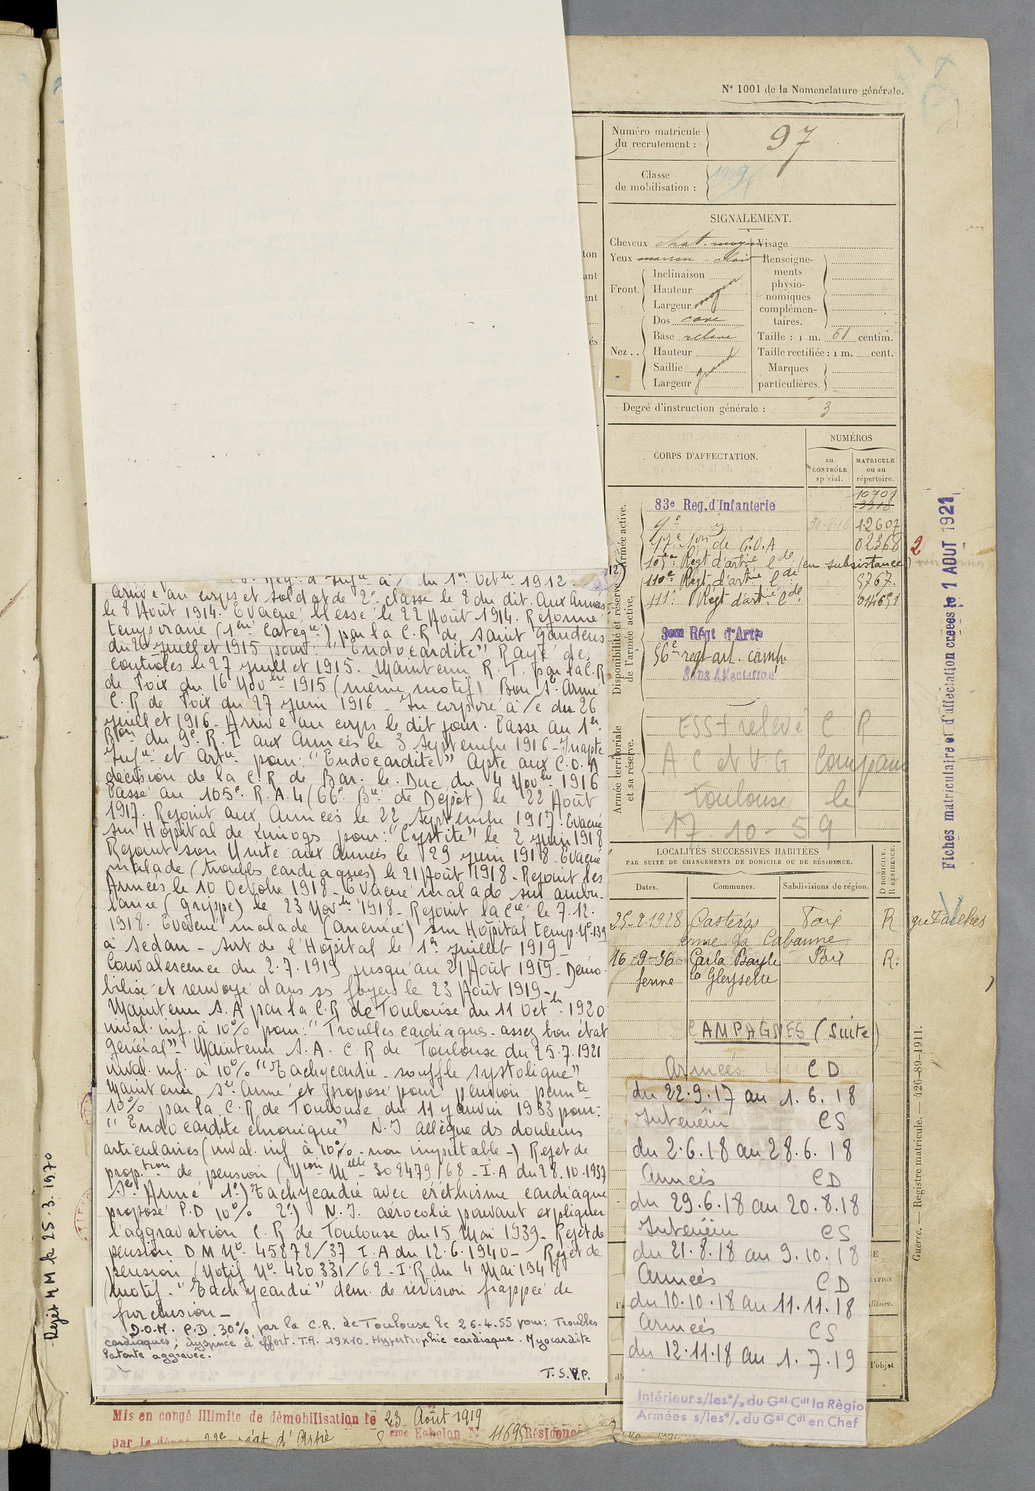 N° 1001 de la Nomenclature générale.
Numéro matricule du recrutement : 97
Classe de mobilisation :
SIGNALEMENT.
Cheveux chat. moyen Visage
Yeux marron clair Renseignements physionomiques complémentaires.
Front. Inclinaison
Hauteur
Largeur moyen
Nez .. Dos cave
Base relevé
Hauteur
Saillie
Largeur grand
Taille : 1 m. 61 centim.
Taille rectifiée : 1 m. cent.
Marques particulières.
Degré d'instruction générale : 3
CORPS D'AFFECTATION.
NUMÉROS
au CONTRÔLE spécial.
MATRICULE ou au répertoire.
Armée active.
83e Reg. d'Infanterie 10701
12607
de C.O.A 02368
105e Regt d'artie lde (en subsistance)
110e Regt d'artie lde 5267
111e Regt d'artie lde 014691
Disponibilité et réserve de l'armée active.
Regt d'Arte
56e regt art. camp
Sans Affectation
Armée territoriale et sa réserve.
ESS + relevé C R
A C et V G Compan
Toulouse le
17-10-59
LOCALITÉS SUCCESSIVES HABITÉES
PAR SUITE DE CHANGEMENTS DE DOMICILE OU DE RÉSIDENCE.
Dates. Communes. Subdivisions de région. D DOMICILE. R RÉSIDENCE.
25-2-1928 Casteras Foix R
ferme La Cabanne
16-9-36 Carla Bayle Foix R.
ferme la Gleysette
CAMPAGNES (Suite)
Armées CD
du 22.9.17 au 1.6.18
Intérieur CS
du 2.6.18 au 28.6.18
Armées CD
du 29.6.18 au 20.8.18
Intérieur CS
du 21.8.18 au 9.10.18
Armées CD
du 10.10.18 au 11.11.18
Armées CS
du 12.11.18 au 1.7.19
Intérieur s/les o/. du Gal Cdt la Régio
Armées s/les o/. du Gal Cdt en Chef
Fiches matriculaire et d'affectation créées le 1 AOUT 1921
Guerre. — Registre matricule. — 426-89-1911.
du 1er Octbre 1912.
Arrivé au corps et soldat de 2e classe le 8 du dit. Aux Armées
le 8 Août 1914. Evacué blessé le 22 Août 1914. Réformé
temporaire (1ère Catégie) par la C.R. de Saint Gaudens
du 20 juillet 1915 pour : "Endocardite" Rayé des
contrôles le 27 juillet 1915. Maintenu R.T. par la C.R
de Foix du 16 Novbre 1915 (même motif) Bon Se Armé
C.R de Foix du 27 juin 1916 - Incorporé à/c du 26
juillet 1916. Arrivé au corps le dit jour. Passé au 1er
Bton du 9e R.I aux Armées le 3 Septembre 1916 - Inapte
Infie et Artie pour : "Endocardite" Apte aux C.O.A
décision de la C.R de Bar-le-Duc du 4 Novbre 1916
Passé au 105e R.A.L (66e Bie de Dépôt) le 22 Août
1917. Rejoint aux Armées le 22 Septembre 1917. Evacué
sur Hôpital de Limoges pour : "Cystite" le 2 juin 1918
Rejoint son Unité aux Armées le 29 juin 1918. Evacué
malade (troubles cardiaques) le 21 Août 1918 - Rejoint les
Armées le 10 Octobre 1918 - Evacué malade sur ambu-
lance (grippe) le 23 Novbre 1918 - Rejoint la Cie le 7.12.
1918. Evacué malade (anémie) sur Hôpital temp. N° 139
à Sedan - Sort de l'Hôpital le 1er juillet 1919
Convalescence du 2.7.1919 jusqu'au 21 Août 1919 - Démo-
bilisé et renvoyé dans ses foyers le 23 Août 1919 -
Maintenu S.A par la C.R de Toulouse du 11 Octbre 1920
inval. inf. à 10% pour : "Troubles cardiaques - assez bon état
général" - Maintenu S.A. C R de Toulouse du 25.7.1921
inval. inf. à 10% "Tachycardie - souffle systolique"
Maintenu Se Armé et proposé pour pension permte
10% par la C.R. de Toulouse du 11 janvier 1933 pour :
"Endocardite chronique" N.I allègue ds douleurs
articulaires (inval. inf. à 10% - non imputable -) Rejet de
proption de pension (Non Mlle 308479/68 - I.A du 28.10.1937
Se Armé 1°) Tachycardie avec éréthisme cardiaque
proposé P.D 10% 2°) N.I. aérocolie pouvant expliquer
l'aggravation C.R de Toulouse du 15 Mai 1939 - Rejet de
pension D M N° 45878/37 I.A du 12.6.1940 - Rejet de
pension (Notif N° 420331/68 - I.R du 4 Mai 1948
(motif - "Tachycardie" dem. de révision frappée de
forclusion -
D.O.M. P.D. 30% par la C.R. de Toulouse le 26.4.55 pour : Troubles
cardiaques, dyspnée d'effort. T.A. 19x10. Hypertrophie cardiaque. Myocardite
latente aggravée.
T.S.V.P.
Rejet MM le 25.3.1970
Mis en congé illimité de démobilisation le 23 Août 1919
par le dépôt
ème Echelon N° 11695 Réside